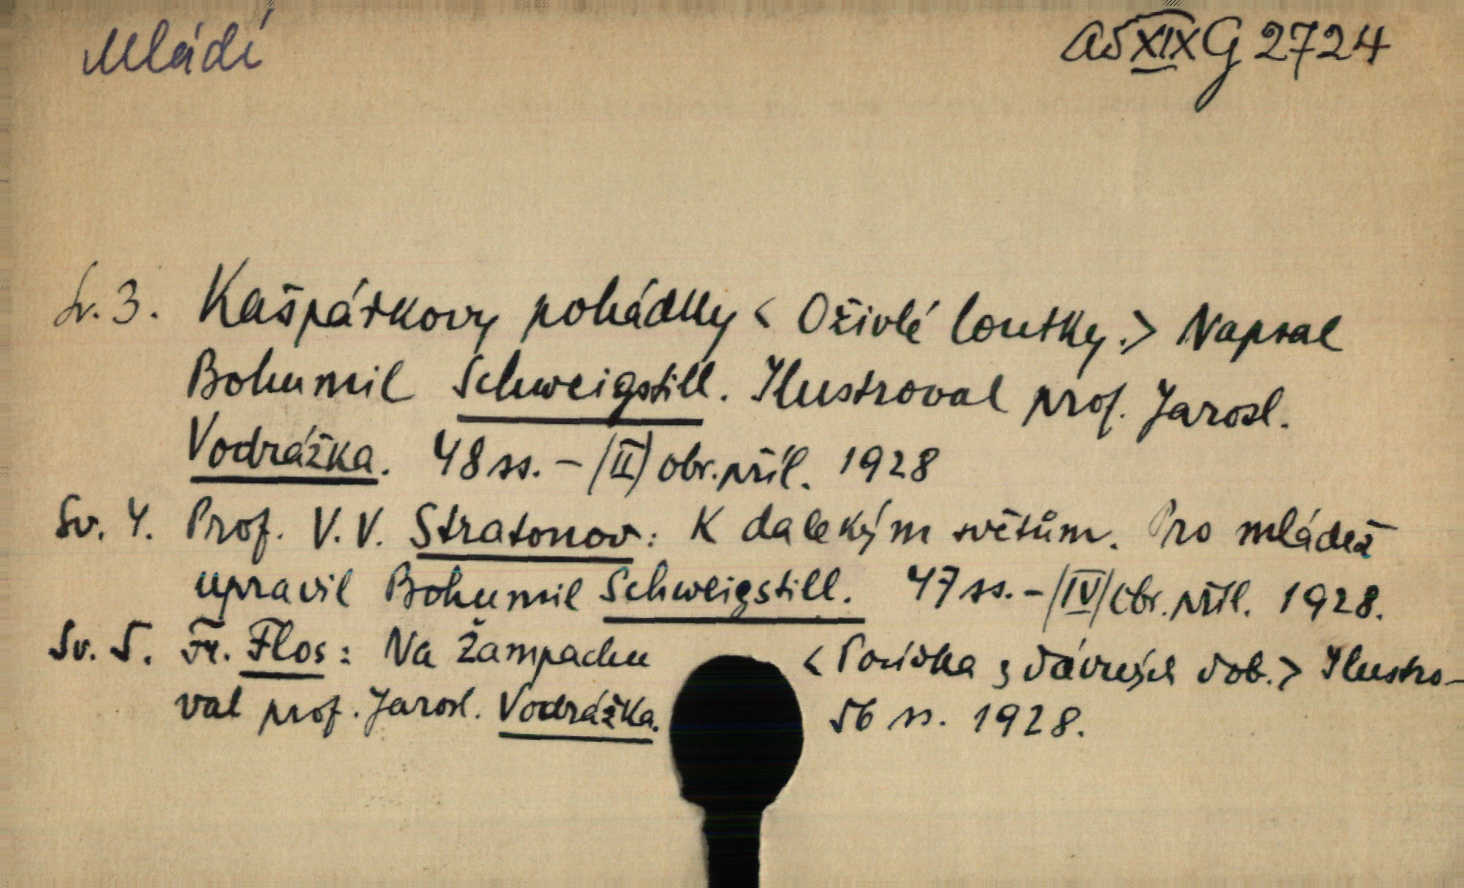 Mládí
ad XIX G 2724
Sv. 3. Kašpárkovy pohádky < Oživlé loutky.> Napsal
Bohumil Schweigstill. Ilustroval prof. Jarosl.
Vodrážka. 48 ss. - (II) obr. příl. 1928
Sv. 4. Prof. V. V. Stratonov: K dalekým světům. Pro mládež
upravil Bohumil Schweigstill. 47 ss. - (IV) obr. příl. 1928.
Sv. 5. Fr. Flos: Na Žampachu < Povídka z dávných dob.> Ilustro-
val prof. Jarosl. Vodrážka. 56 ss. 1928.